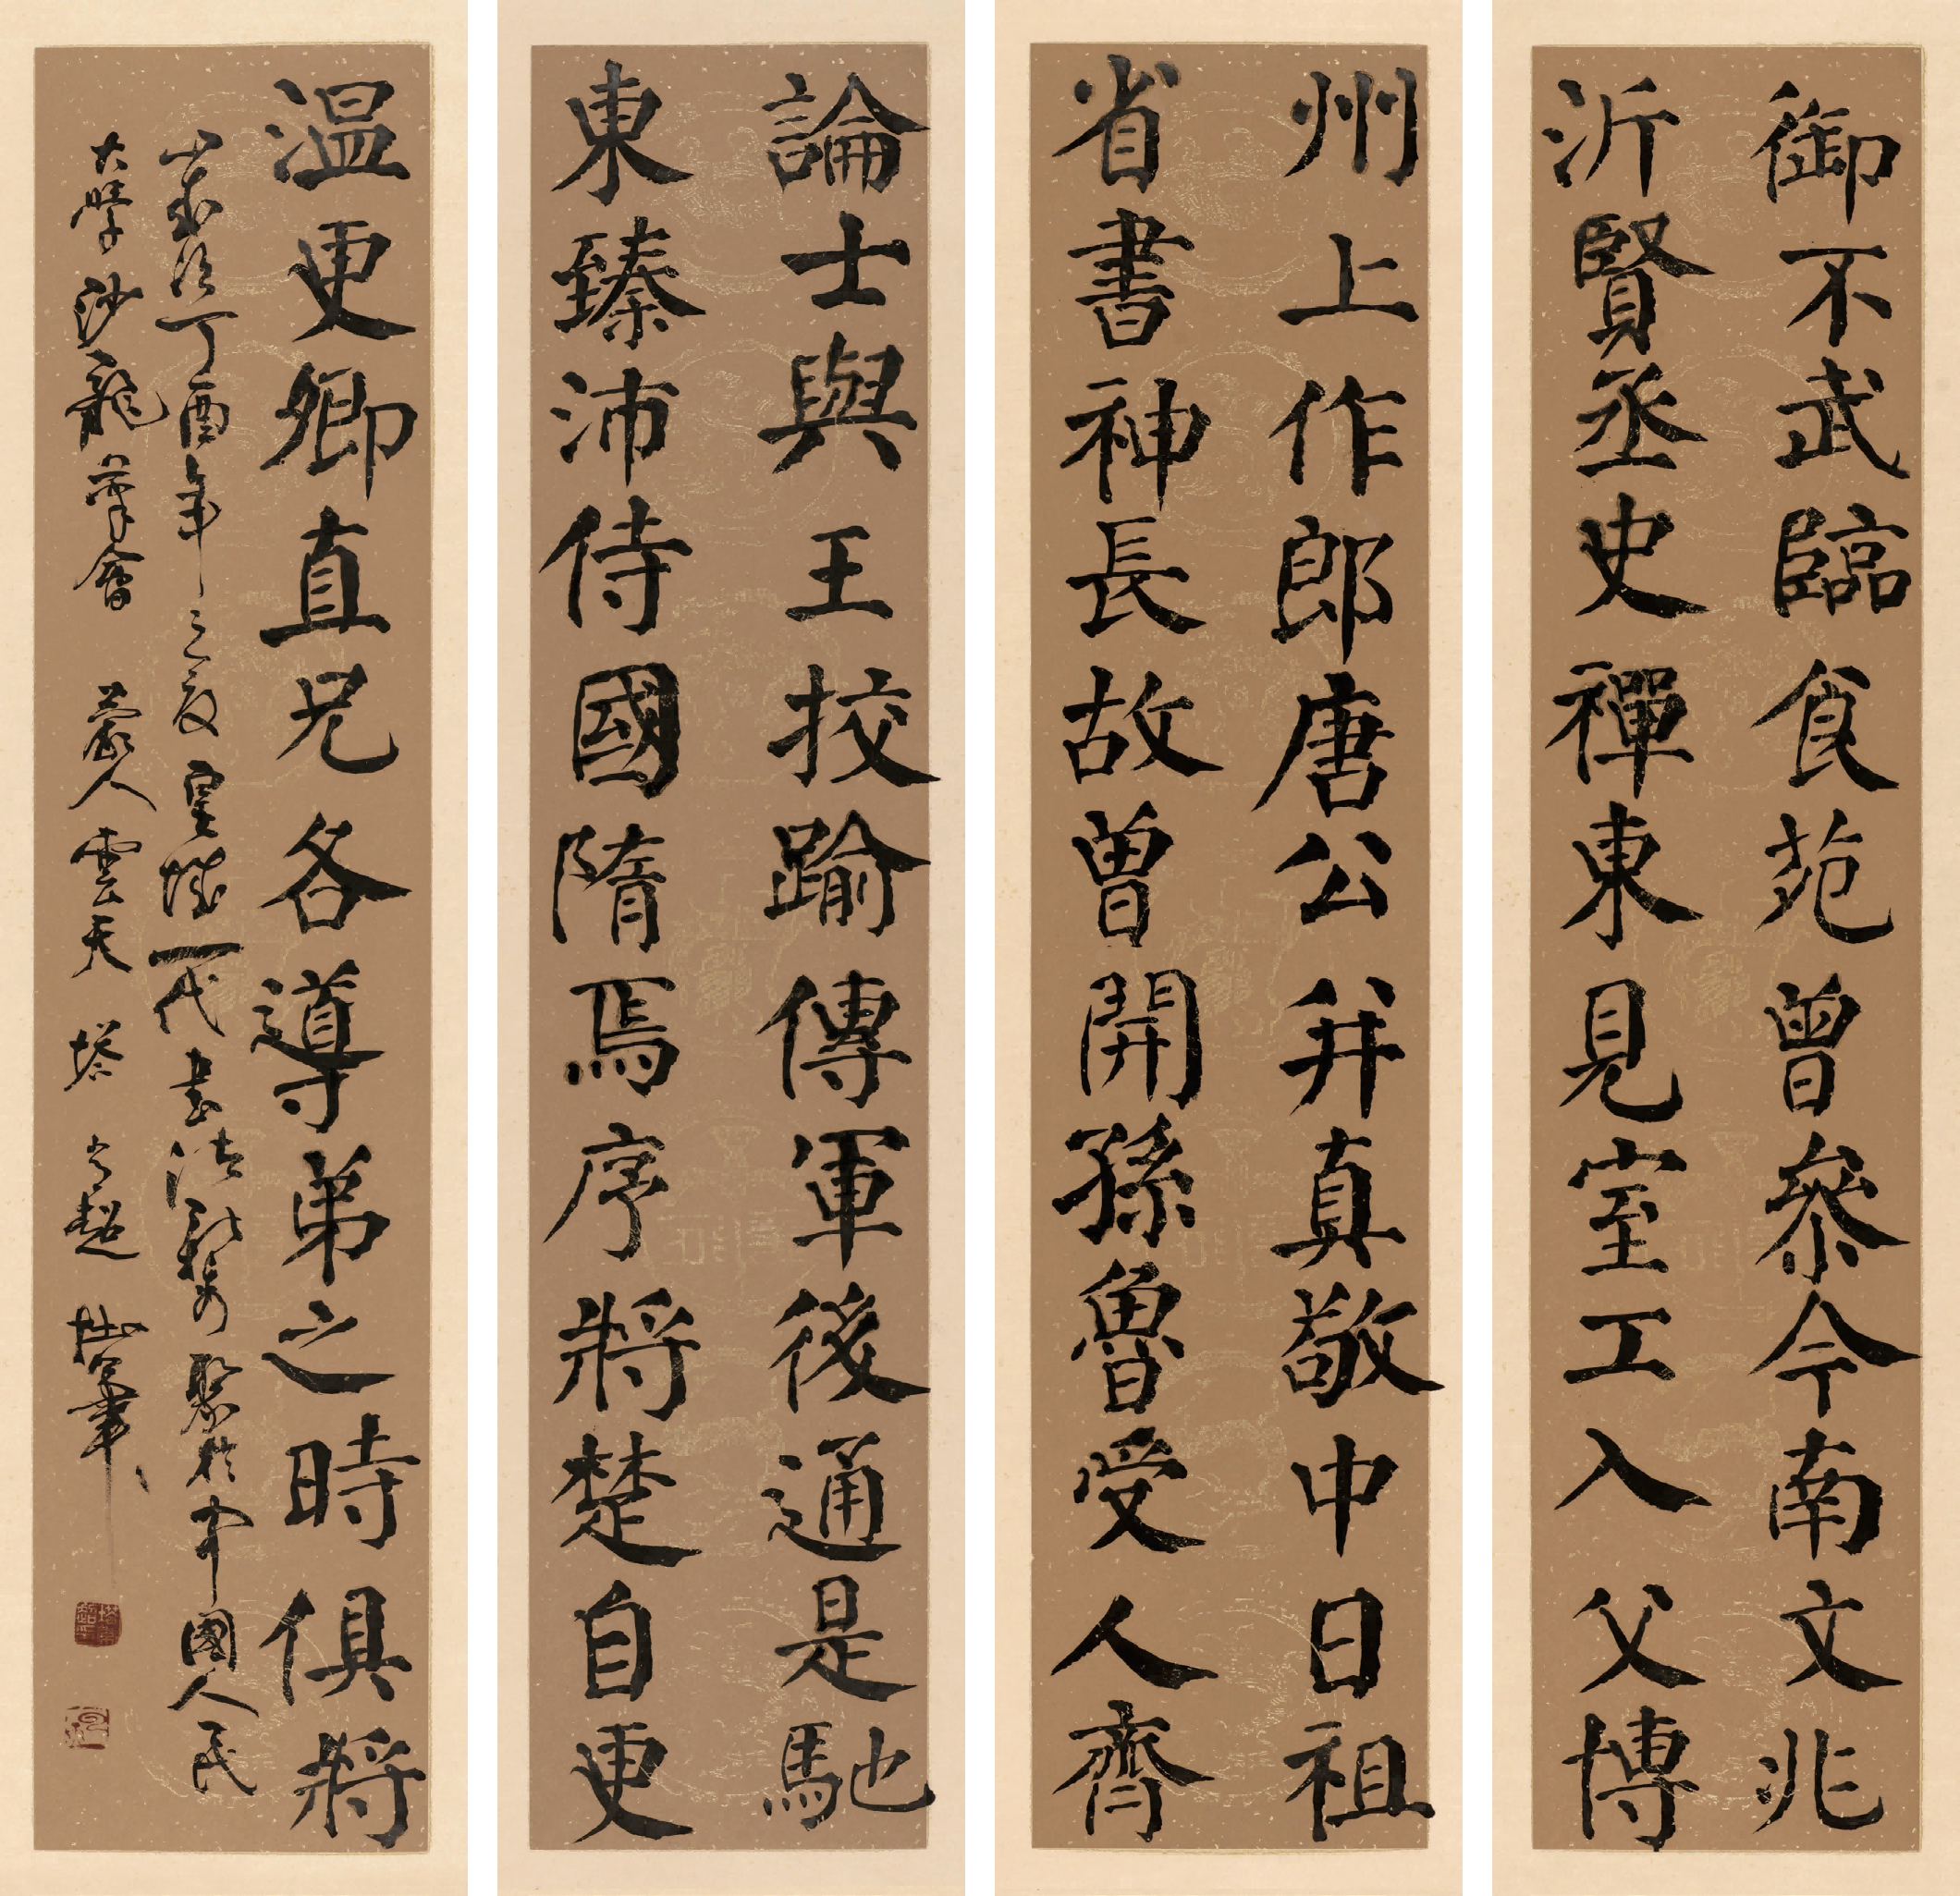 御不武臨食苑曾參今南文兆
沂賢丞史禪東見室工入父博
州上作郎唐公并真敬中日祖
省書神長故曾開孫魯受人齊
論士與王挍踰傳軍後通是馳
東臻沛侍國隋焉序將楚自更
溫更卿直兄各導弟之時俱將
丁酉年之夏皇城一代書法聚於中國人民
大學沙龍筆會蒙人雲天塔超拙筆